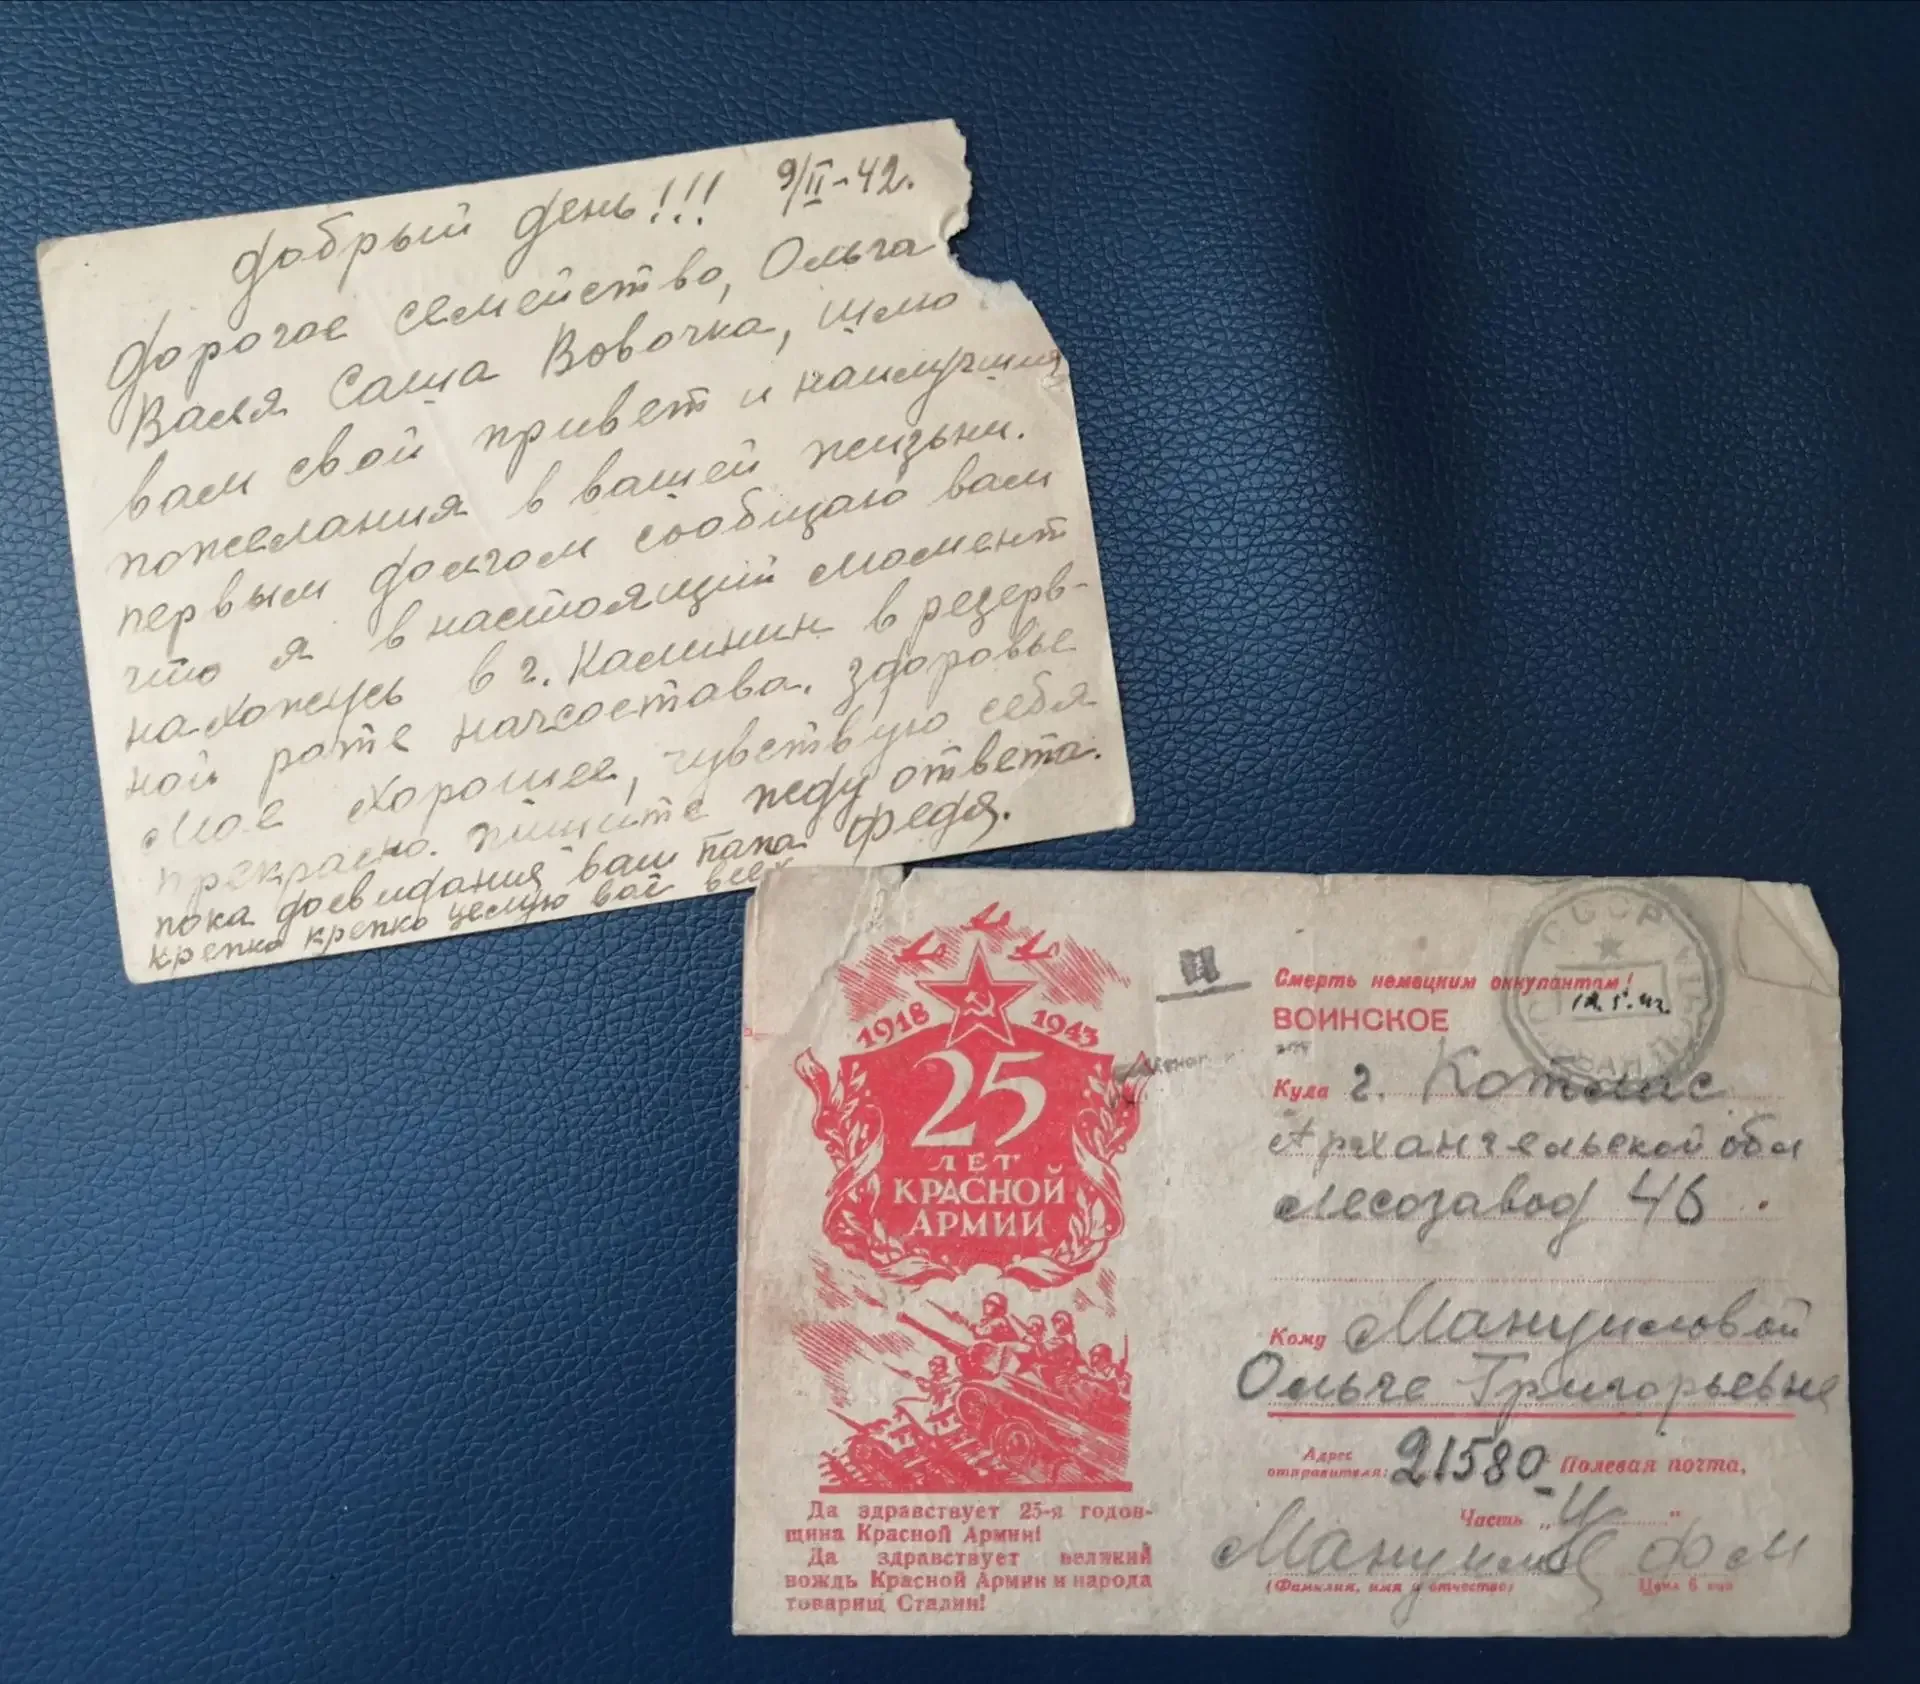 Добрый день!!! 9/II-42.
Дорогое семейство, Ольга
Валя Саша Вовочка, шлю
вам свой привет и наилучшия
пожелания в вашей жизьни.
первым долгом сообщаю вам
что я в настоящий момент
нахожусь в г. Калинин в резерв-
ной роте начсостава. здоровье
мое хорошее, чувствую себя
прекрасно. пишите жду ответа.
пока досвидания ваш папа Федя.
крепко крепко целую вас всех
1918 1943
25
ЛЕТ
КРАСНОЙ
АРМИИ
Да здравствует 25-я годов-
щина Красной Армии!
Да здравствует великий
вождь Красной Армии и народа
товарищ Сталин!
СССР
Смерть немецким оккупантам!
ВОИНСКОЕ
Куда г. Котлас
Архангельской обл
Лесозавод 46
Кому Мануиловой
Ольге Григорьевне
Адрес
отправителя: 21580 Полевая почта,
Часть „И"
Мануилов Ф М
(Фамилия, имя и отчество) Цена 6 коп